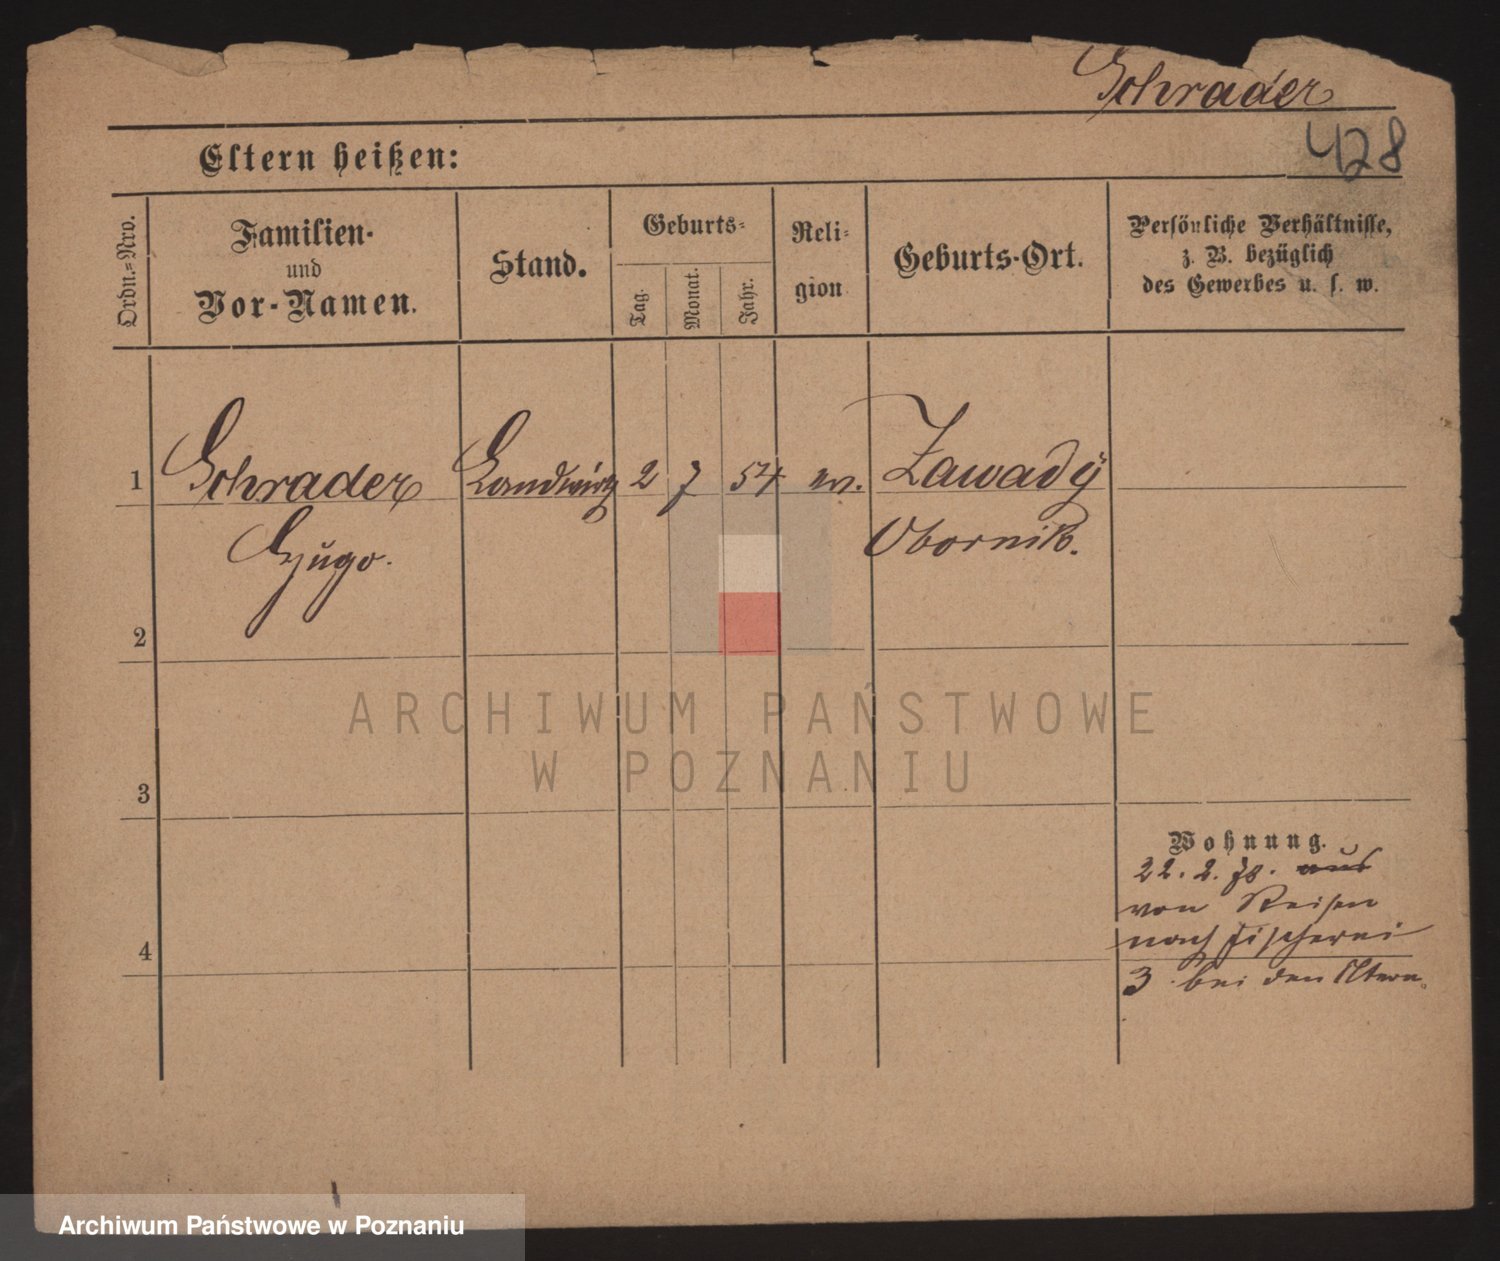 Schrader
428
Eltern heißen:
Ordn.=Nro.
Familien-
und
Vor-Namen.
Stand.
Geburts-
Tag.
Monat.
Jahr.
Reli-
gion
Geburts-Ort.
Persönliche Verhältnisse,
z. B. bezüglich
des Gewerbes u. s. w.
1 Schrader Landwirth 2 7 54 ev. Zawady
Hugo. Obornik.
2
ARCHIWUM PAŃSTWOWE
W POZNANIU
3
Wohnung.
22. 2. 78. aus
von Reisen
nach Fischerei
4
3 bei den Eltern.
Archiwum Państwowe w Poznaniu